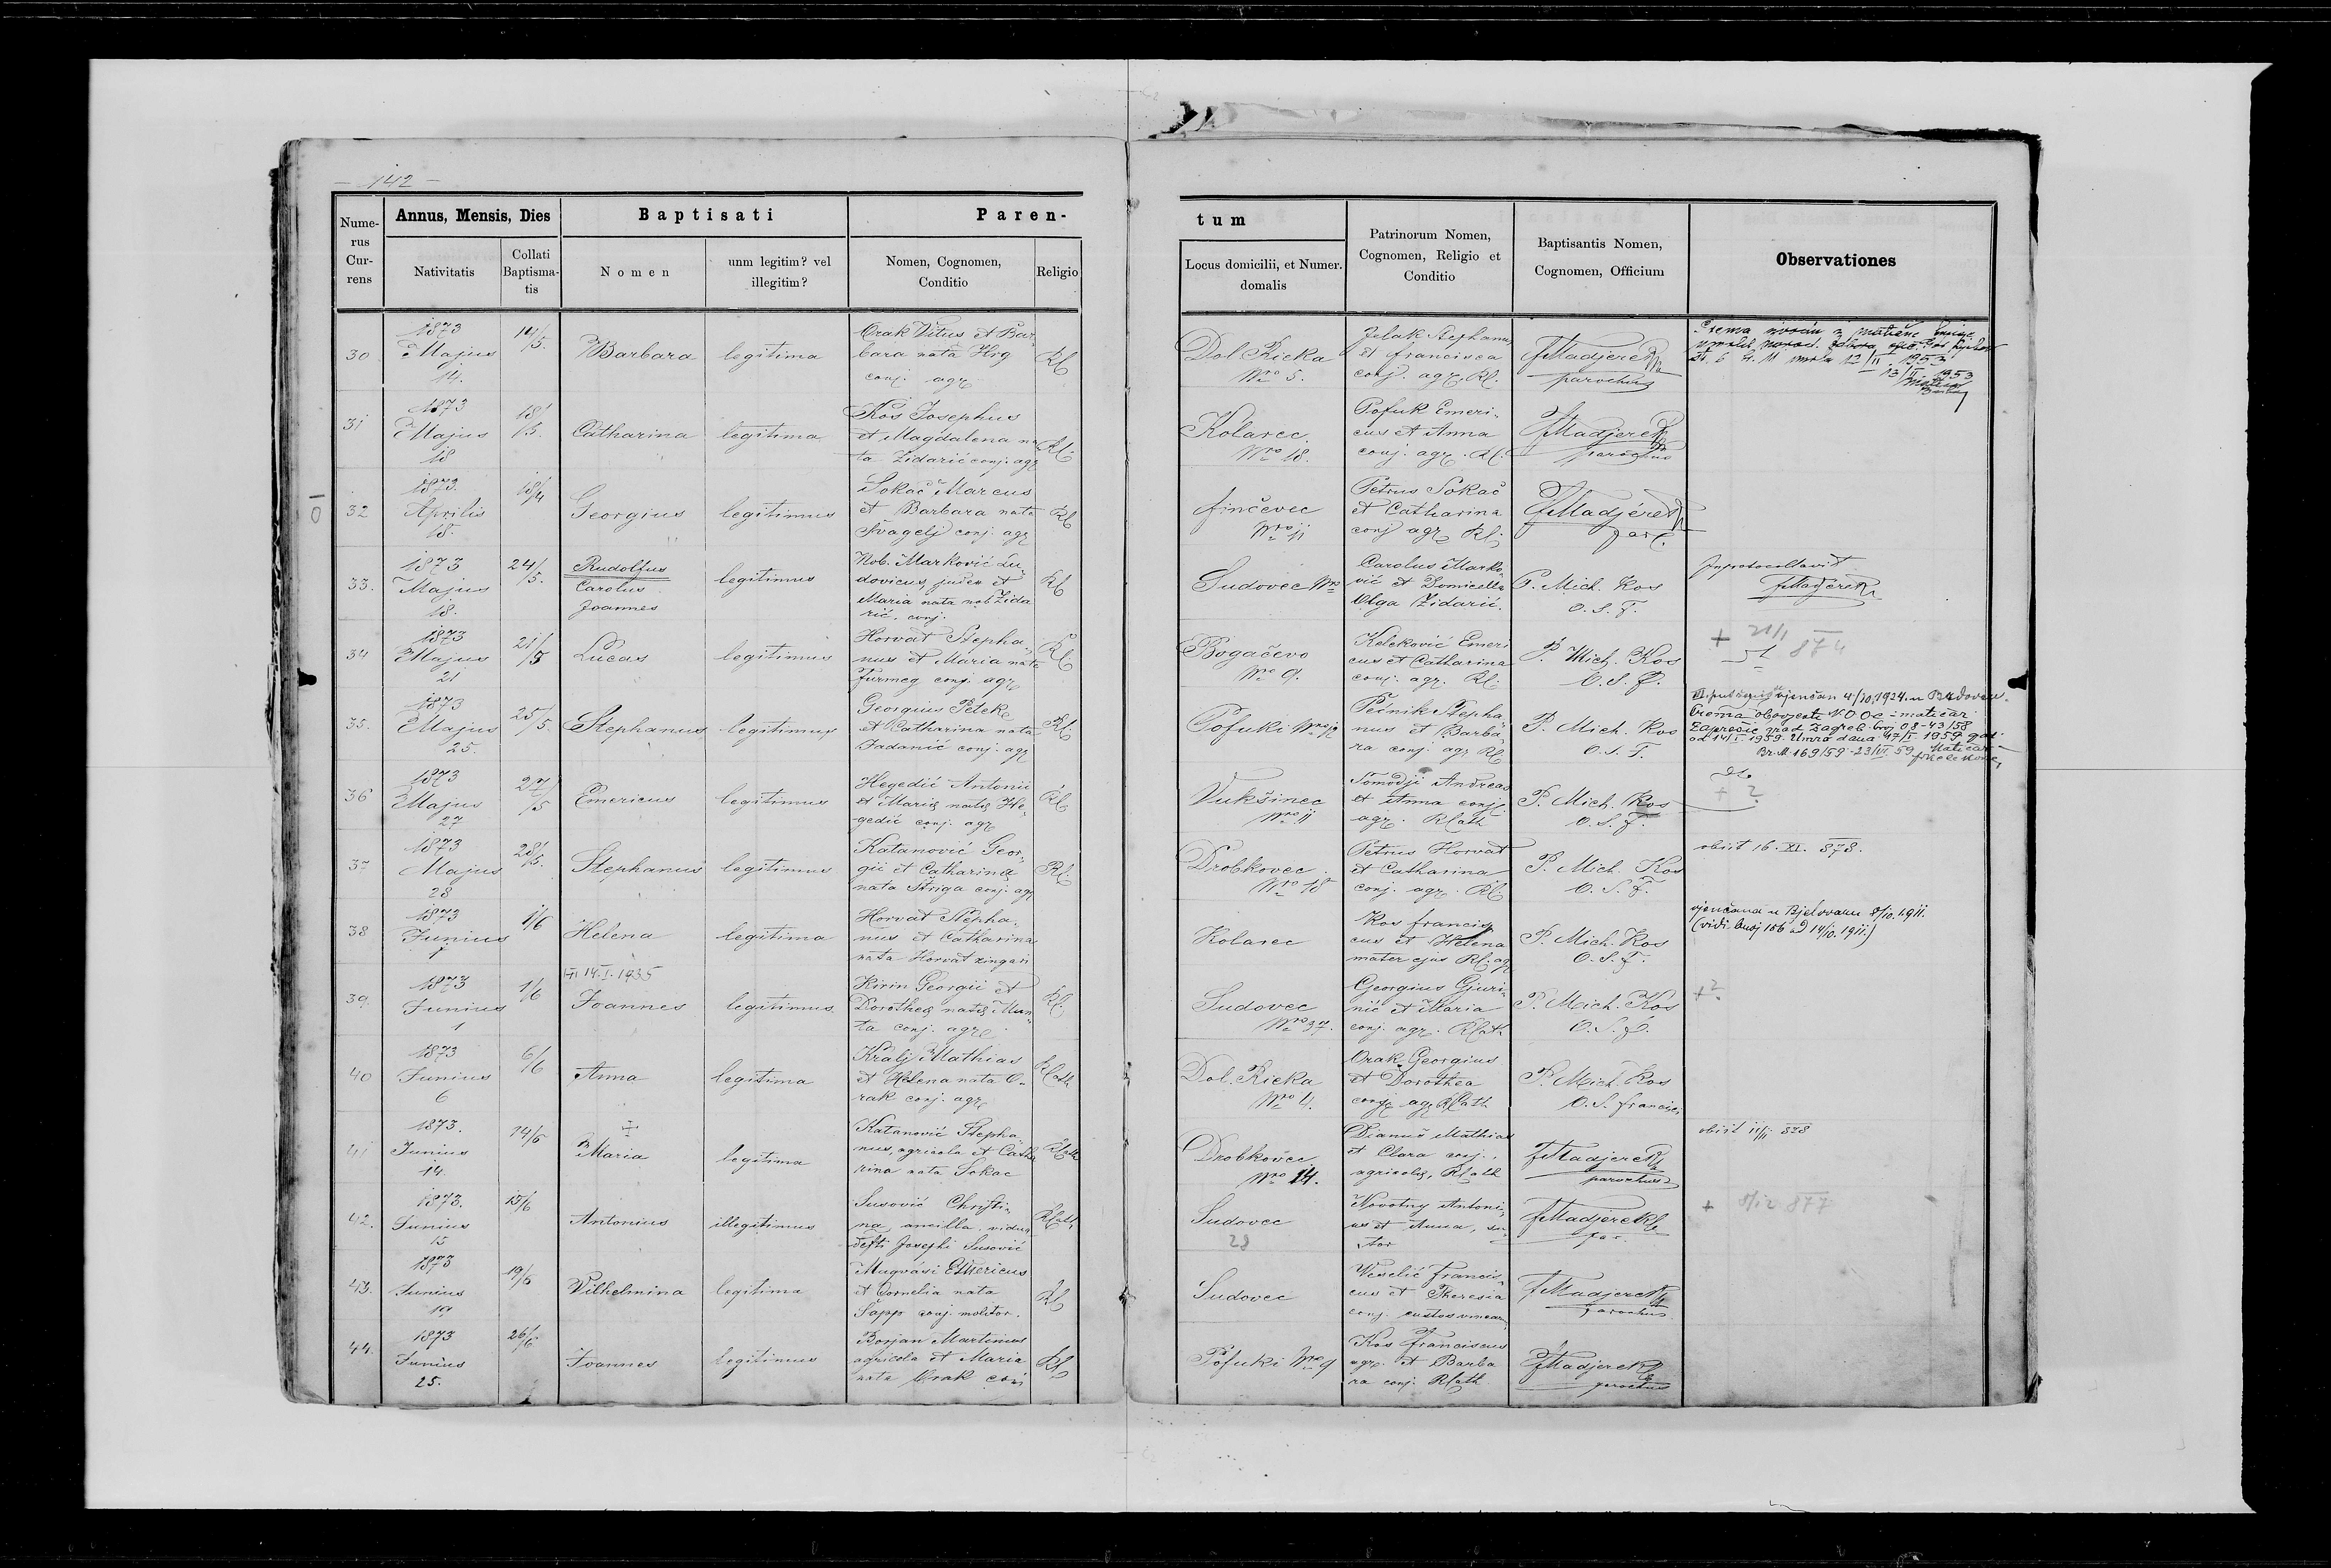 — 142 —
Nume-
rus
Cur-
rens
Annus, Mensis, Dies
Nativitatis
Collati
Baptisma-
tis
Baptisati
Nomen
unm legitim? vel
illegitim?
Paren-
Nomen, Cognomen,
Conditio
Religio
tum
Locus domicilii, et Numer.
domalis
Patrinorum Nomen,
Cognomen, Religio et
Conditio
Baptisantis Nomen,
Cognomen, Officium
Observationes
30
1873
Majus
14.
14/5.
Barbara
legitima
Orak Vitus et Bar-
bara nata Hrg
conj. agr
Dol. Rieka
Nro 5.
Jelak Stephanus
et Francisca
conj. agr. Rl.
FMadjerek
parochus
12/II. 1953
13/II 1953
31
1873
Majus
18
18/5.
Catharina
legitima
Kos Josephus
et Magdalena na
ta Zidarić conj. agr
Rl.
Kolarec.
Nro 18.
Pofuk Emeri-
cus et Anna
conj. agr. Rl.
FMadjerek
parochus
32
1873.
Aprilis
18.
18/4
Georgius
legitimus
Sokač Marcus
et Barbara nata
Švagelj conj. agr
Rl
Finčevec
Nro 11
Petrus Sokač
et Catharina
conj agr Rl.
FMadjerek
par.
33.
1873
Majus
18.
24/5.
Rudolfus
Carolus
Joannes
legitimus
Nob. Marković Lu-
dovicus, judex et
Maria nata nob Zida
rić, conj.
Rl
Sudovec Nro
Carolus Marko-
vić et Domicella
Olga Zidarić.
P. Mich. Kos
O. S. F.
Inprotocollavit
FMadjerek
34
1873
Majus
21
21/5
Lucas
legitimus
Horvat Stepha-
nus et Maria nata
Furmeg conj. agr
Rl
Bogačevo
Nro 9.
Keleković Emeri
cus et Catharina
conj. agr. Rl.
P. Mich. Kos
O. S. F.
+ 21/1 874
35.
1873
Majus
25.
25/5.
Stephanus
legitimus
Georgius Petek
et Catharina nata
Jadanić conj. agr
Rl.
Pofuki Nro 12
Pečnik Stepha-
nus et Barba-
ra conj. agr Rl
P. Mich. Kos
O. S. F.
vjenčan 4/10.1924. u
Prema obavjesti N.O.Oe - matičar
Zaprešić grad Zagreb broj 08-43/58
od 14/I-1959. Umro dana 17/I 1959 god.
Br. M 169/59 - 23/VI. 59 Matičar
36
1873
Majus
27
27/5
Emericus
legitimus
Hegedić Antonii
et Mariæ natæ He-
gedić conj. agr
Rl
Vukšinec
Nro 11
Šomodji Andreas
et Anna conj.
agr. Rlath
P. Mich. Kos
O. S. F.
+ ?
37
1873
Majus
28
28/5.
Stephanus
legitimus
Katanović Geor-
gii et Catharina
nata Štriga conj. agr
Rl.
Drobkovec
Nro 18
Petrus Horvat
et Catharina
conj. agr. Rl.
P. Mich. Kos
O. S. F.
obiit 16. XI. 878.
38
1873
Junius
1
1/6
Helena
legitima
Horvat Stepha-
nus et Catharina
nata Horvat zingari
Kolarec
Kos Francis
cus et Helena
mater ejus Rl. agr
P. Mich. Kos
O. S. F.
vjenčana u Bjelovaru 8/10. 1911.
(vidi broj 156 ad 14/10. 1911.)
39.
1873
Junius
1
1/6
14. I. 1935
Joannes
legitimus.
Kirin Georgii et
Dorotheæ natæ Mun-
ta conj. agr
Rl.
Sudovec
Nro 37.
Georgius Gjuri-
nić et Maria
conj. agr. Rlath
P. Mich. Kos
O. S. F.
+?
40
1873
Junius
6
6/6
Anna
legitima
Kralj Mathias
et Helena nata O-
rak conj. agr
Rlath
Dol. Rieka
Nro 4.
Orak Georgius
et Dorothea
conj. agr Rlath
P. Mich. Kos
O. S. Francisci
41
1873.
Junius
14.
14/6
+
Maria
legitima
Katanović Stepha
nus, agricola et Catha
rina nata Sokac
Rlath
Drobkovec
Nro 14.
Dianuš Mathias
et Clara conj.,
agricolæ, Rlath
FMadjerek
parochus
obiit 11/11 878
42.
1873.
Junius
15
15/6
Antonius
illegitimus
Susović Christi-
na, ancilla, vidua
defti Josephi Susović
Rlath
Sudovec
28
Novotny Antoni-
us et Anna, su-
tor
FMadjerek
par.
+ 8/12 877
43.
1873
Junius
19
19/6
Vilhelmina
legitima
Magvási Emericus
et Cornelia nata
Sapp conj. molitor.
Rl
Sudovec
Veselić Francis-
cus et Theresia
conj. custos vinear.
FMadjerek
parochus
44.
1873
Junius
25.
26/6
Joannes
legitimus
Borjan Martinus
agricola et Maria
nata Orak conj
Rl
Pofuki Nro 9
Kos Franciscus
agr. et Barba
ra conj. Rlath
FMadjerek
parochus